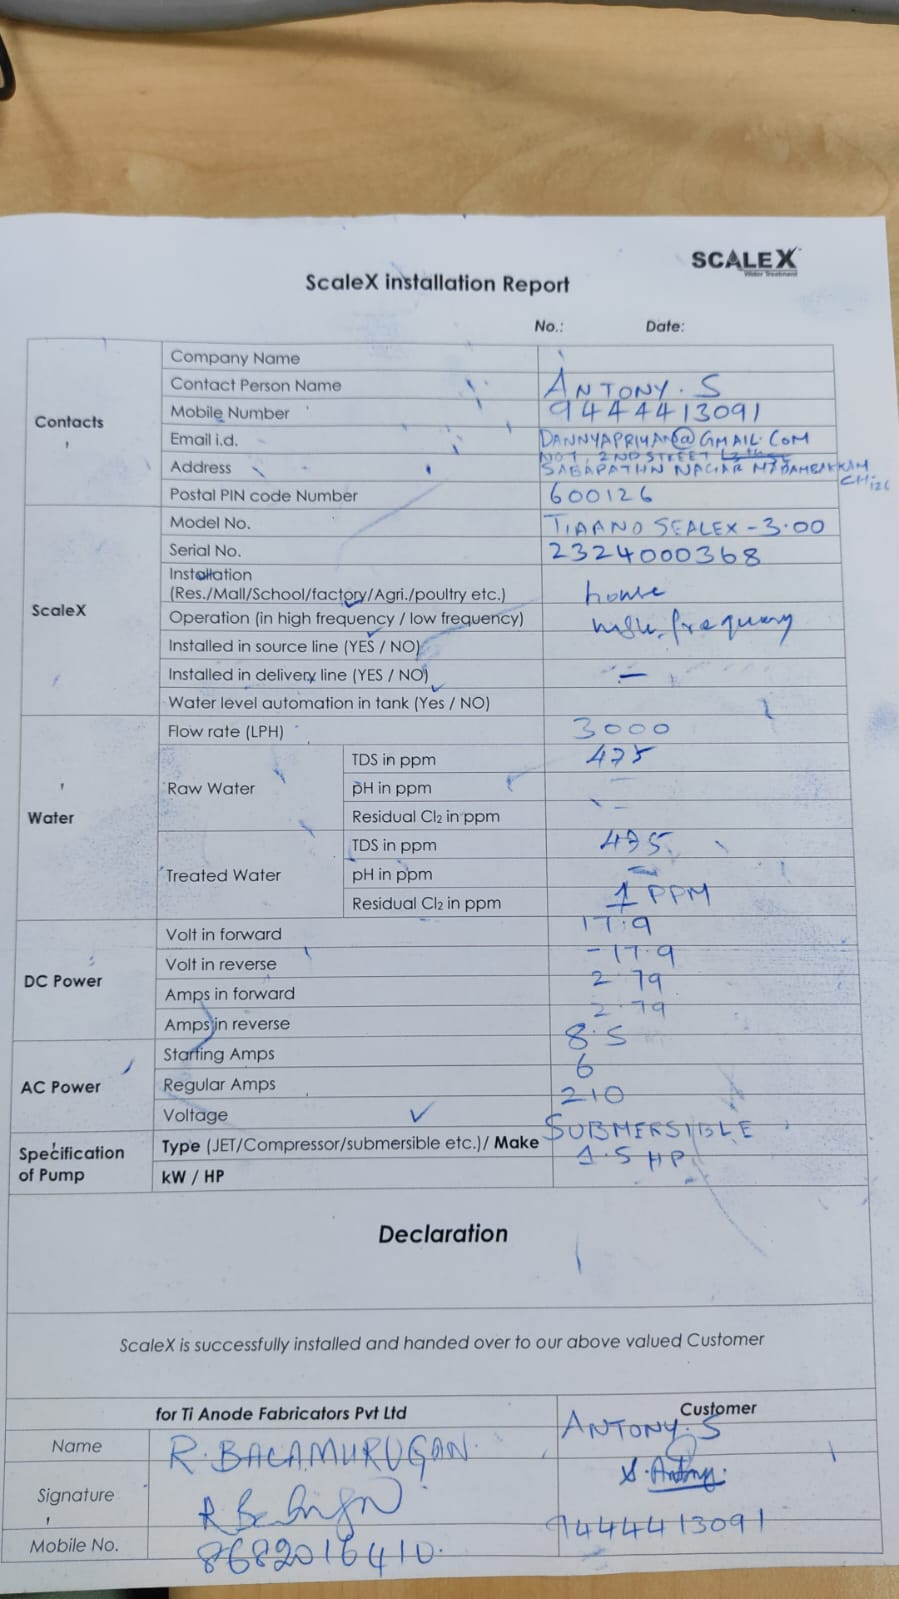 SCALEX
Water Treatment
ScaleX installation Report
No.: Date:
Contacts
Company Name
Contact Person Name ANTONY. S
Mobile Number 9444413091
Email i.d. DANNYAPRIYAN@GMAIL.COM
Address NO 1, 2ND STREET
SABAPATHN NAGAR MADAMBAKKAM
CH-126
Postal PIN code Number 600126
ScaleX
Model No. TIAANO SEALEX-3.00
Serial No. 2324000368
Installation
(Res./Mall/School/factory/Agri./poultry etc.) house
Operation (in high frequency / low frequency) high frequency
Installed in source line (YES / NO)
Installed in delivery line (YES / NO) —
Water level automation in tank (Yes / NO)
Water
Flow rate (LPH) 3000
Raw Water
TDS in ppm 475
pH in ppm —
Residual Cl2 in ppm —
Treated Water
TDS in ppm 475
pH in ppm —
Residual Cl2 in ppm 1 PPM
DC Power
Volt in forward 17.9
Volt in reverse -17.9
Amps in forward 2.79
Amps in reverse 2.79
AC Power
Starting Amps 8.5
Regular Amps 6
Voltage 210
Specification
of Pump
Type (JET/Compressor/submersible etc.)/ Make SUBMERSIBLE
kW / HP 1.5 HP
Declaration
ScaleX is successfully installed and handed over to our above valued Customer
for Ti Anode Fabricators Pvt Ltd Customer
Name R. BALAMURUGAN. ANTONY. S
Signature S. Antony.
Mobile No. 8682016410. 9444413091